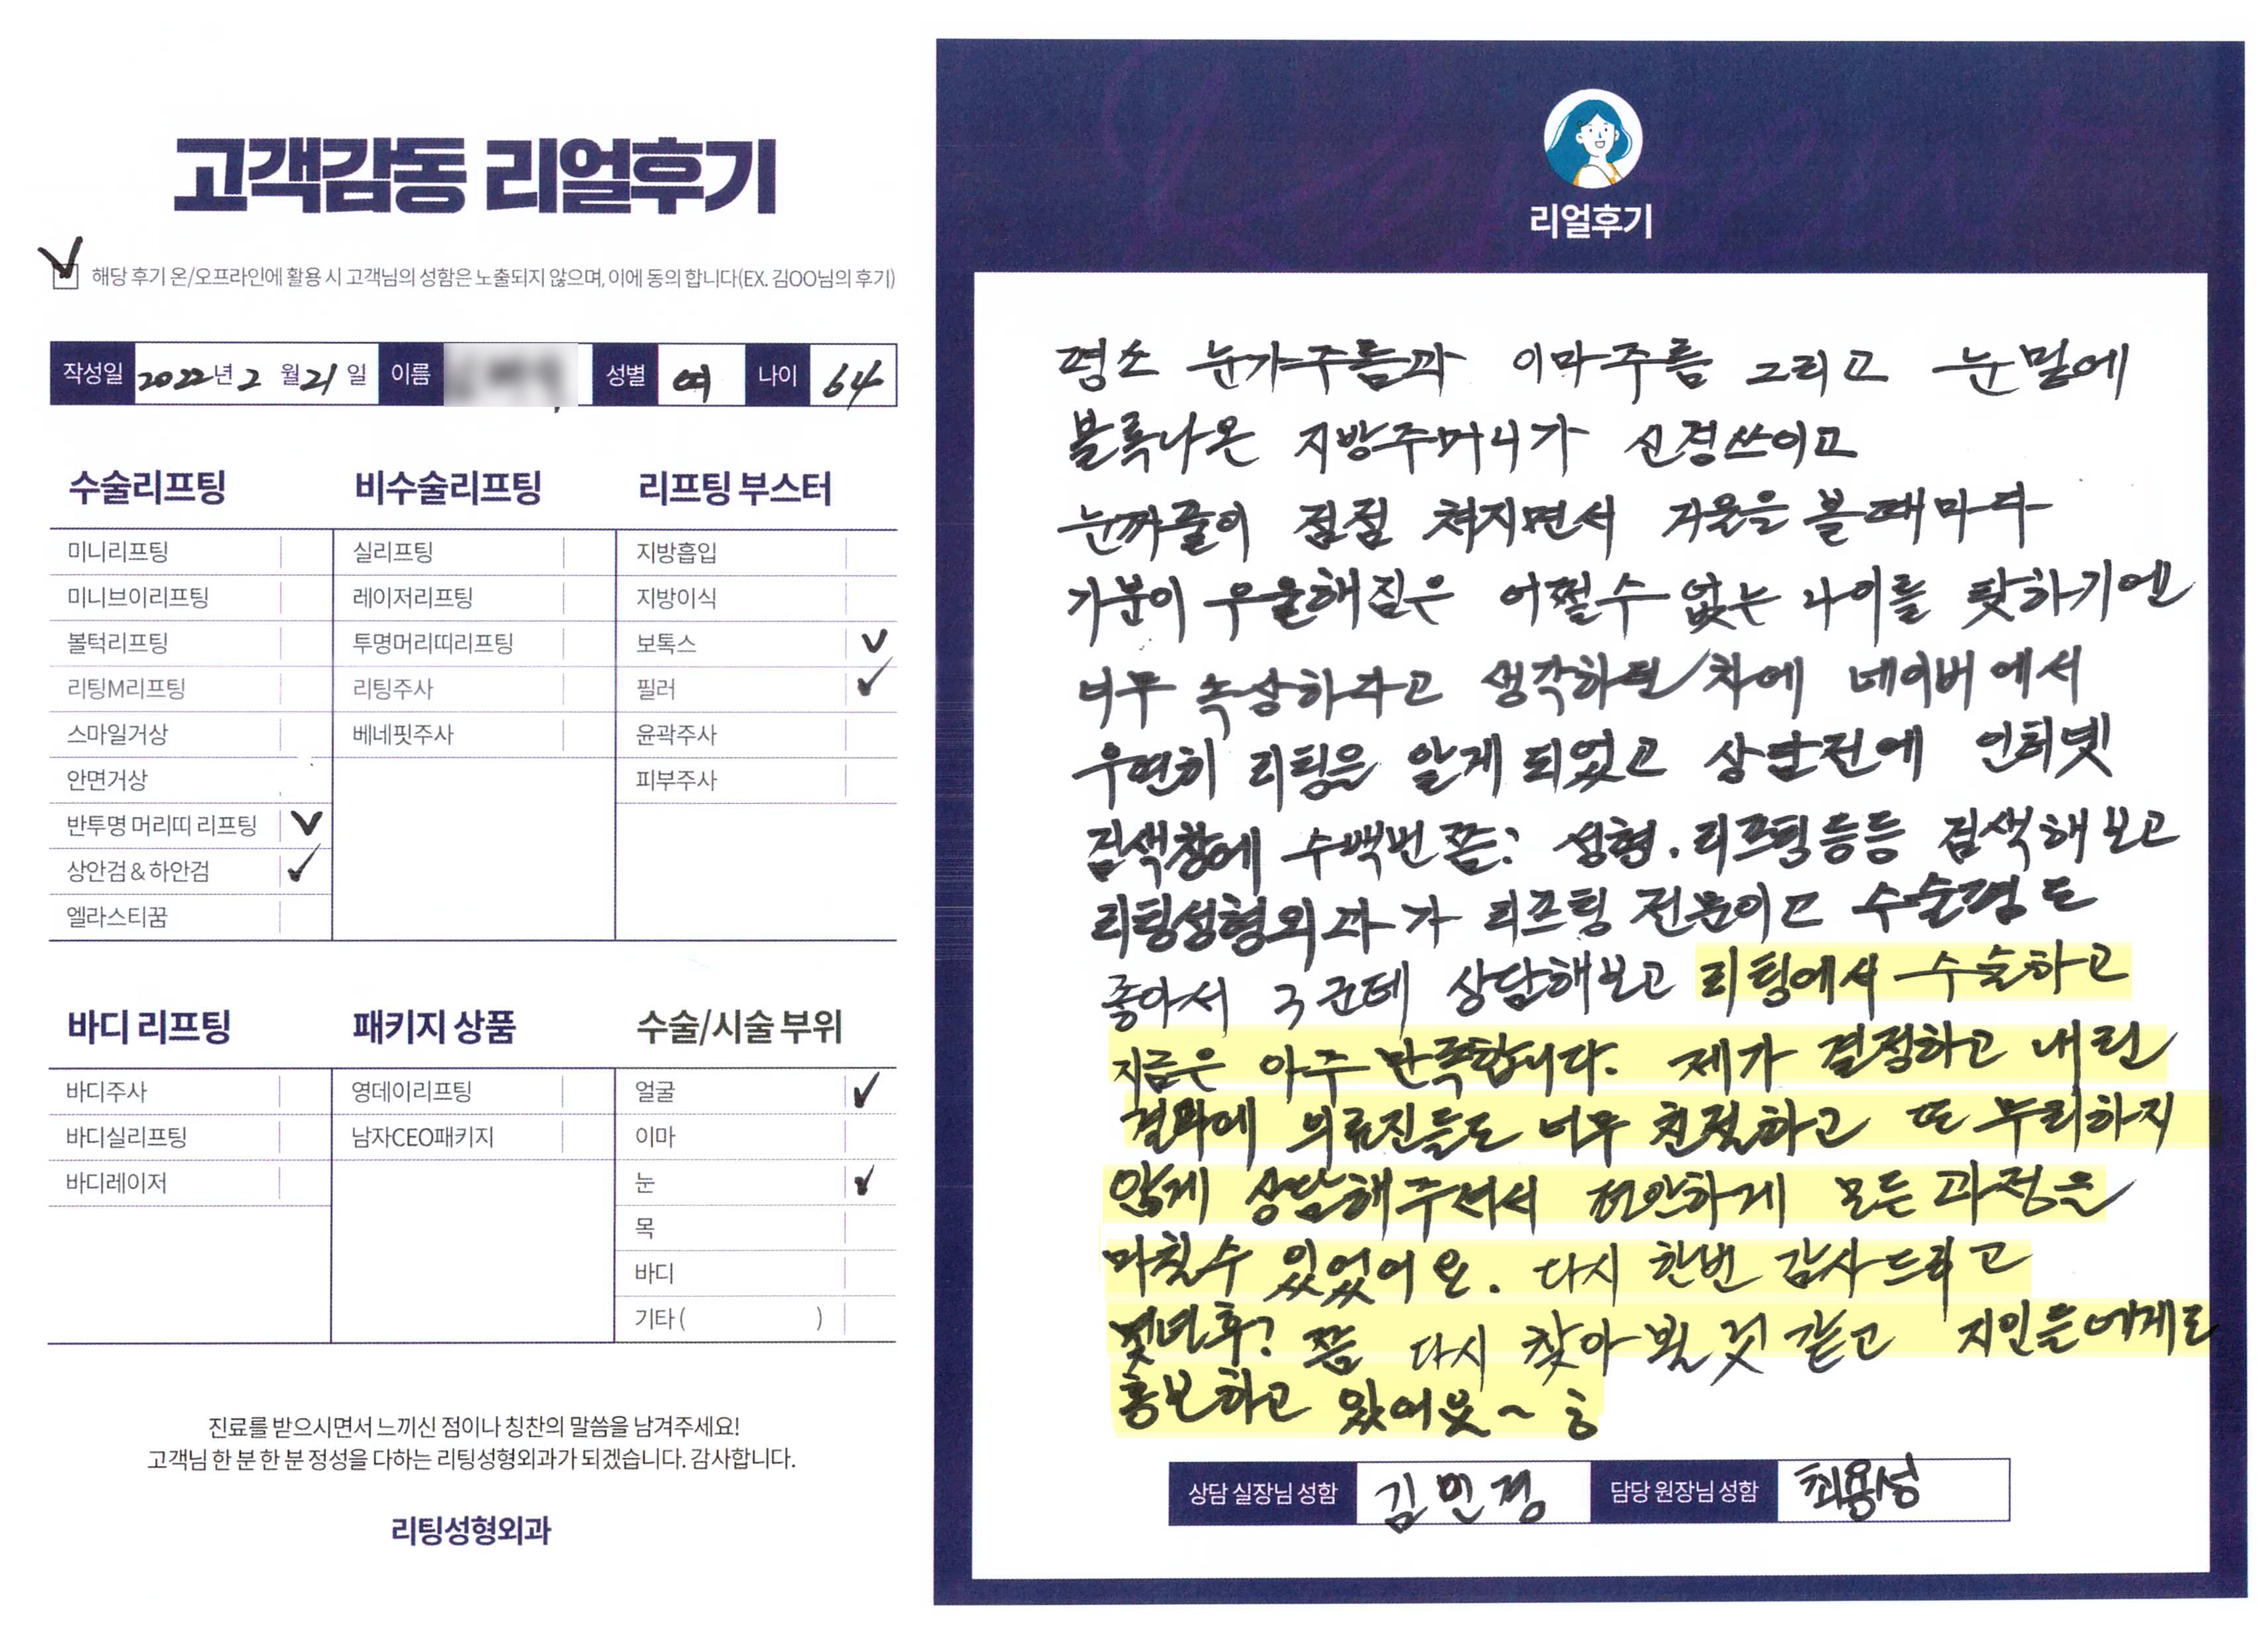 고객감동 리얼후기
해당 후기 온/오프라인에 활용 시 고객님의 성함은 노출되지 않으며, 이에 동의 합니다(EX. 김OO님의 후기)
작성일 2022년 2 월 21 일 이름 성별 여 나이 64
수술리프팅
미니리프팅
미니브이리프팅
볼턱리프팅
리팅M리프팅
스마일거상
안면거상
반투명 머리띠 리프팅 V
상안검 & 하안검 ✓
엘라스티꿈
비수술리프팅
실리프팅
레이저리프팅
투명머리띠리프팅
리팅주사
베네핏주사
리프팅 부스터
지방흡입
지방이식
보톡스 V
필러 ✓
윤곽주사
피부주사
바디 리프팅
바디주사
바디실리프팅
바디레이저
패키지 상품
영데이리프팅
남자CEO패키지
수술/시술 부위
얼굴 ✓
이마
눈 ✓
목
바디
기타 ( )
진료를 받으시면서 느끼신 점이나 칭찬의 말씀을 남겨주세요!
고객님 한 분 한 분 정성을 다하는 리팅성형외과가 되겠습니다. 감사합니다.
리팅성형외과
리얼후기
평소 눈가주름과 이마주름 그리고 눈밑에
볼록나온 지방주머니가 신경쓰이고
눈꺼풀이 점점 쳐지면서 거울을 볼때마다
기분이 우울해짐은 어쩔수 없는 나이를 탓하기엔
너무 속상하다고 생각하던 차에 네이버에서
우연히 리팅을 알게 되었고 상담전에 인터넷
검색창에 수백번쯤? 성형.리프팅등등 검색해보고
리팅성형외과가 리프팅 전문이고 수술평도
좋아서 3군데 상담해보고 리팅에서 수술하고
지금은 아주 만족합니다. 제가 결정하고 내린
결과에 의료진들도 너무 친절하고 또 무리하지
않게 상담해주셔서 편안하게 모든 과정을
마칠수 있었어요. 다시 한번 감사드리고
몇년후? 쯤 다시 찾아 뵐 것 같고 지인들에게도
홍보하고 있어요~ ㅎ
상담 실장님 성함 김민경 담당 원장님 성함 최용성